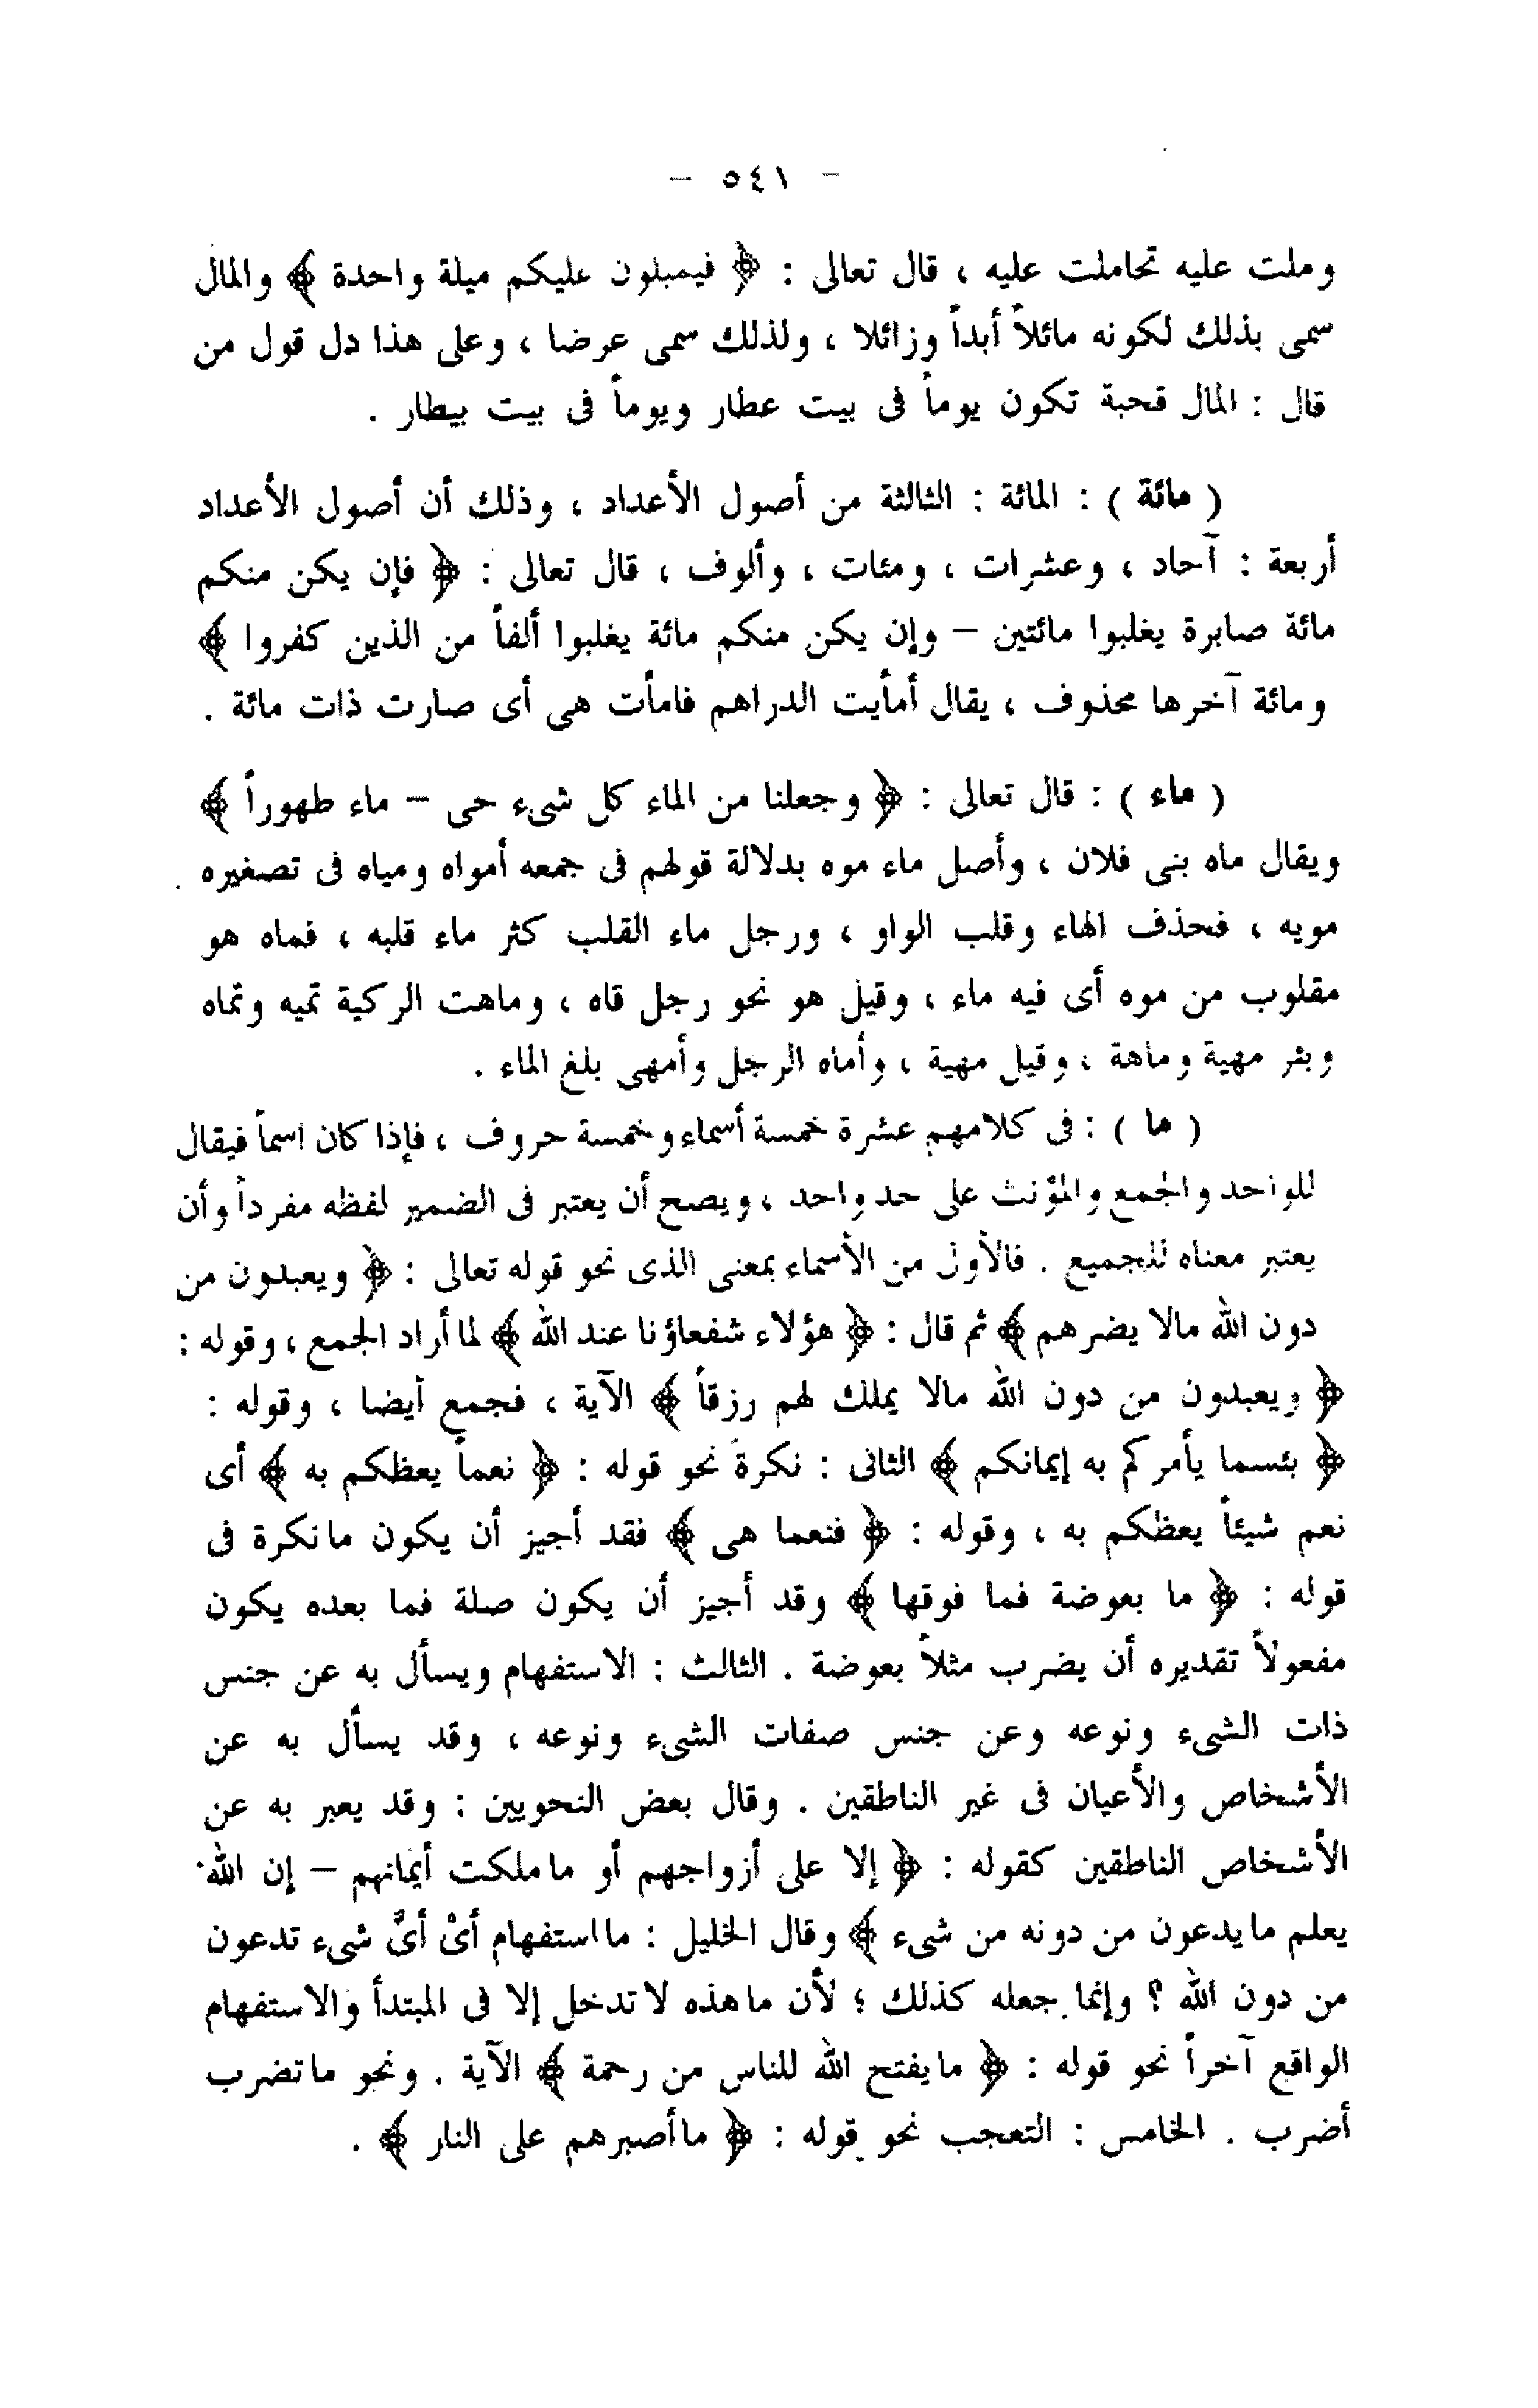 - ٥٤١ -
وملت عليه تحاملت عليه ، قال تعالى : ﴿ فيميلون عليكم ميلة واحدة ﴾ والمال
سمى بذلك لكونه مائلاً أبداً وزائلا ، ولذلك سمى عرضا ، وعلى هذا دل قول من
قال : المال قحبة تكون يوماً فى بيت عطار ويوماً فى بيت بيطار .
( مائة ) : المائة : الثالثة من أصول الأعداد ، وذلك أن أصول الأعداد
أربعة : آحاد ، وعشرات ، ومئات ، وألوف ، قال تعالى : ﴿ فإن يكن منكم
مائة صابرة يغلبوا مائتين – وإن يكن منكم مائة يغلبوا ألفاً من الذين كفروا ﴾
ومائة آخرها محذوف ، يقال أمأيت الدراهم فامأت هى أى صارت ذات مائة .
( ماء ) : قال تعالى : ﴿ وجعلنا من الماء كل شىء حى – ماء طهوراً ﴾
ويقال ماه بنى فلان ، وأصل ماء موه بدلالة قولهم فى جمعه أمواه ومياه فى تصغيره .
مويه ، فحذف الهاء وقلب الواو ، ورجل ماء القلب كثر ماء قلبه ، فماه هو
مقلوب من موه أى فيه ماء ، وقيل هو نحو رجل قاه ، وماهت الركية تميه وتماه
وبئر مهية وماهة ، وقيل مهية ، وأماه الرجل وأمهى بلغ الماء .
( ما ) : فى كلامهم عشرة خمسة أسماء وخمسة حروف ، فإذا كان اسماً فيقال
للواحد والجمع والمؤنث على حد واحد ، ويصح أن يعتبر فى الضمير لفظه مفرداً وأن
يعتبر معناه للجميع . فالأول من الأسماء بمعنى الذى نحو قوله تعالى : ﴿ ويعبدون من
دون الله مالا يضرهم ﴾ ثم قال : ﴿ هؤلاء شفعاؤنا عند الله ﴾ لما أراد الجمع ، وقوله :
﴿ ويعبدون من دون الله مالا يملك لهم رزقاً ﴾ الآية ، فجمع أيضا ، وقوله :
﴿ بئسما يأمركم به إيمانكم ﴾ الثانى : نكرة نحو قوله : ﴿ نعماً يعظكم به ﴾ أى
نعم شيئاً يعظكم به ، وقوله : ﴿ فنعما هى ﴾ فقد أجيز أن يكون ما نكرة فى
قوله : ﴿ ما بعوضة فما فوقها ﴾ وقد أجيز أن يكون صلة فما بعده يكون
مفعولاً تقديره أن يضرب مثلاً بعوضة . الثالث : الاستفهام ويسأل به عن جنس
ذات الشىء ونوعه وعن جنس صفات الشىء ونوعه ، وقد يسأل به عن
الأشخاص والأعيان فى غير الناطقين . وقال بعض النحويين : وقد يعبر به عن
الأشخاص الناطقين كقوله : ﴿ إلا على أزواجهم أو ما ملكت أيمانهم – إن الله
يعلم ما يدعون من دونه من شىء ﴾ وقال الخليل : ما استفهام أىْ أىَّ شىء تدعون
من دون الله ؟ وإنما جعله كذلك ؛ لأن ما هذه لا تدخل إلا فى المبتدأ والاستفهام
الواقع آخراً نحو قوله : ﴿ ما يفتح الله للناس من رحمة ﴾ الآية . ونحو ما تضرب
أضرب . الخامس : التعجب نحو قوله : ﴿ ما أصبرهم على النار ﴾ .